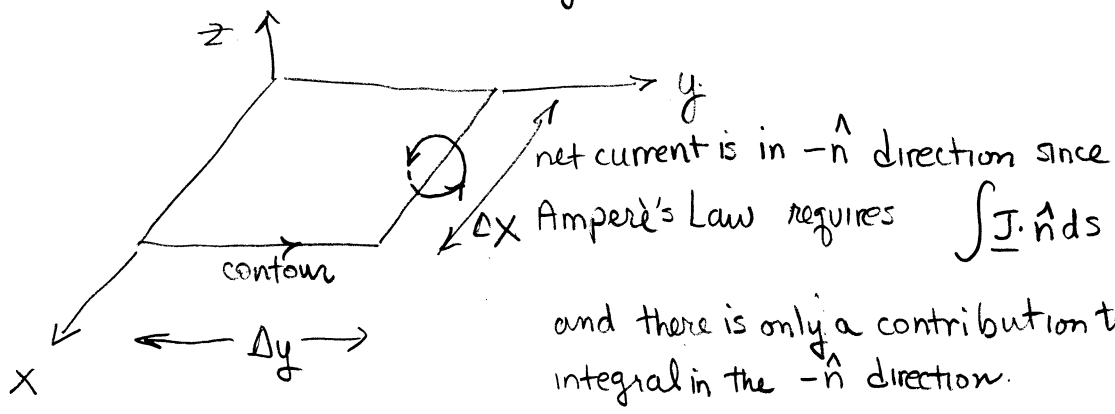 z
y
net current is in -n̂ direction since
Δx Amperè's Law requires ∫J·n̂ds
contour
and there is only a contribution t
Δy
integral in the -n̂ direction.
x